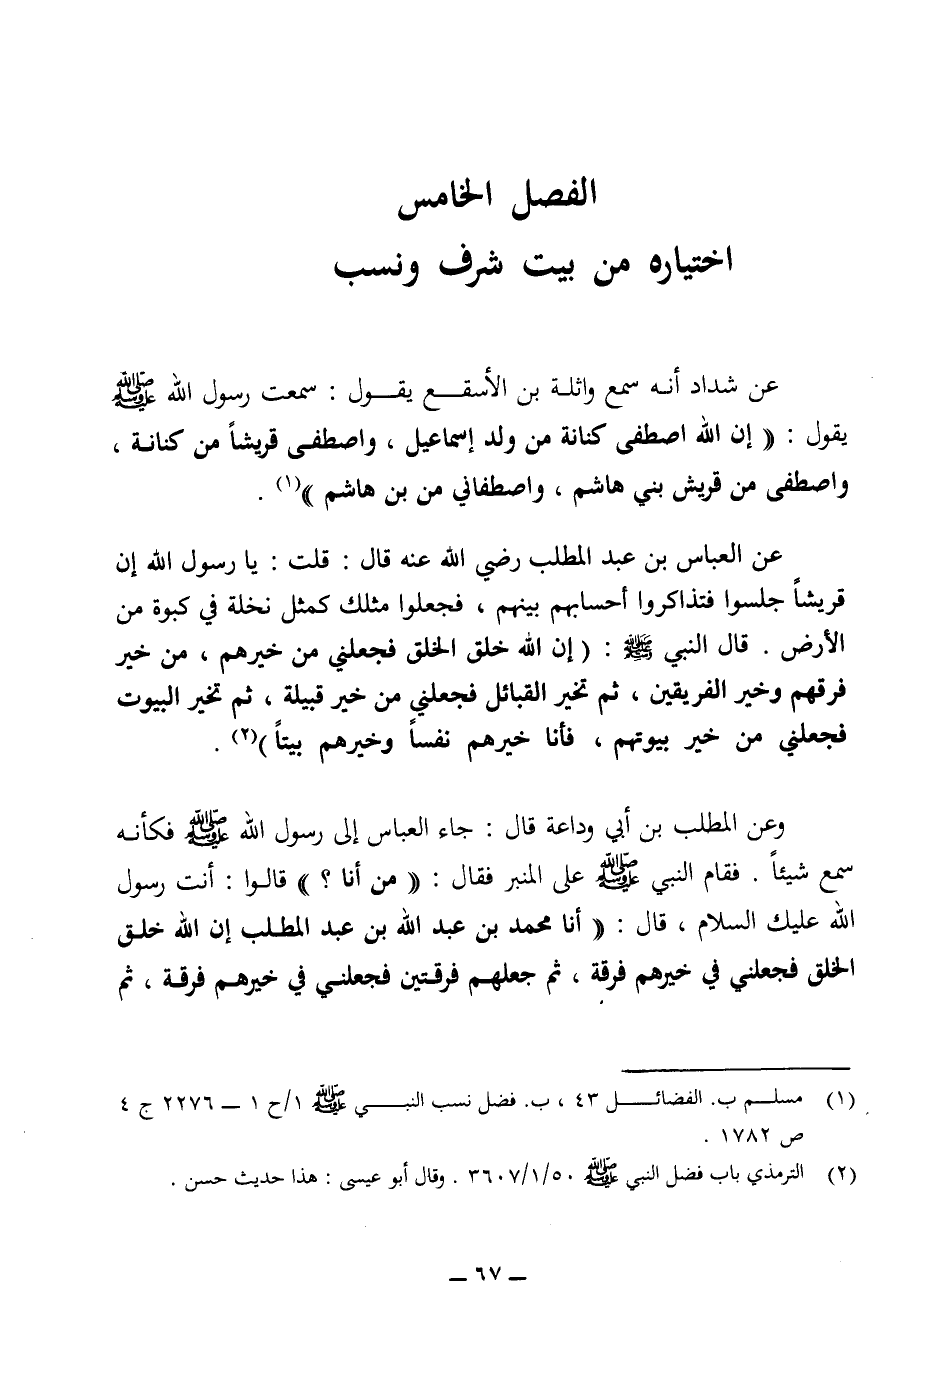 الفصل الخامس
اختياره من بيت شرف ونسب
عن شداد أنه سمع واثلة بن الأسقع يقول : سمعت رسول الله ﷺ
يقول : « إن الله اصطفى كنانة من ولد إسماعيل ، واصطفى قريشاً من كنانة ،
واصطفى من قريش بني هاشم ، واصطفاني من بن هاشم »(١) .
عن العباس بن عبد المطلب رضي الله عنه قال : قلت : يا رسول الله إن
قريشاً جلسوا فتذاكروا أحسابهم بينهم ، فجعلوا مثلك كمثل نخلة في كبوة من
الأرض . قال النبي ﷺ : ( إن الله خلق الخلق فجعلني من خيرهم ، من خير
فرقهم وخير الفريقين ، ثم تخير القبائل فجعلني من خير قبيلة ، ثم تخير البيوت
فجعلني من خير بيوتهم ، فأنا خيرهم نفساً وخيرهم بيتاً )(٢) .
وعن المطلب بن أبي وداعة قال : جاء العباس إلى رسول الله ﷺ فكأنه
سمع شيئاً . فقام النبي ﷺ على المنبر فقال : « من أنا ؟ » قالوا : أنت رسول
الله عليك السلام ، قال : « أنا محمد بن عبد الله بن عبد المطلب إن الله خلق
الخلق فجعلني في خيرهم فرقة ، ثم جعلهم فرقتين فجعلني في خيرهم فرقة ، ثم
(١) مسلم ب. الفضائل ٤٣ ، ب. فضل نسب النبي ﷺ ١/ح ١ – ٢٢٧٦ ج ٤
ص ١٧٨٢ .
(٢) الترمذي باب فضل النبي ﷺ ٣٦٠٧/١/٥٠ . وقال أبو عيسى : هذا حديث حسن .
– ٦٧ –